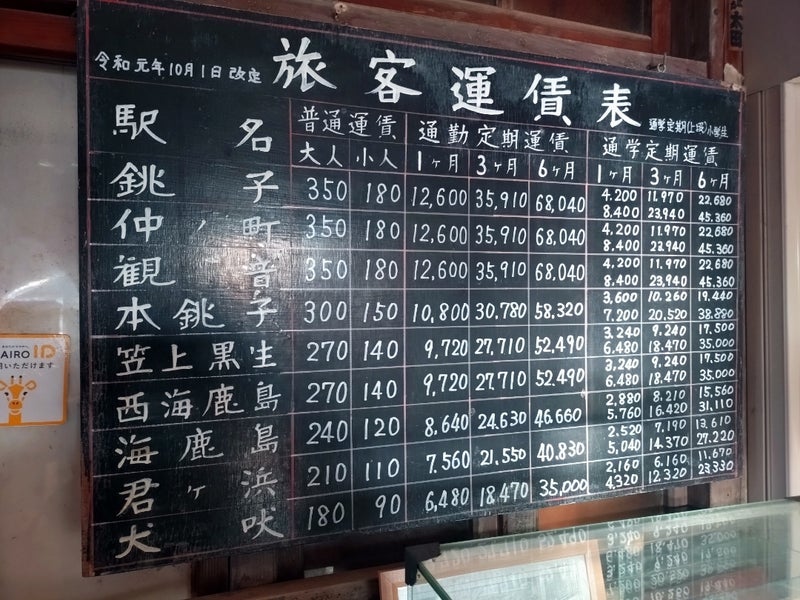 令和元年10月1日改定 旅客運賃表 通学定期(上段)小学生
駅名 普通運賃 通勤定期運賃 通学定期運賃
大人 小人 1ヶ月 3ヶ月 6ヶ月 1ヶ月 3ヶ月 6ヶ月
銚子 350 180 12,600 35,910 68,040 4,200 11,970 22,680
8,400 23,940 45,360
仲ノ町 350 180 12,600 35,910 68,040 4,200 11,970 22,680
8,400 23,940 45,360
観音 350 180 12,600 35,910 68,040 4,200 11,970 22,680
8,400 23,940 45,360
本銚子 300 150 10,800 30,780 58,320 3,600 10,260 19,440
7,200 20,520 38,880
笠上黒生 270 140 9,720 27,710 52,490 3,240 9,240 17,500
6,480 18,470 35,000
西海鹿島 270 140 9,720 27,710 52,490 3,240 9,240 17,500
6,480 18,470 35,000
海鹿島 240 120 8,640 24,630 46,660 2,880 8,210 15,560
5,760 16,420 31,110
君ヶ浜 210 110 7,560 21,550 40,830 2,520 7,190 13,610
5,040 14,370 27,220
犬吠 180 90 6,480 18,470 35,000 2,160 6,160 11,670
4,320 12,320 23,330
AIRO ID
いただけます